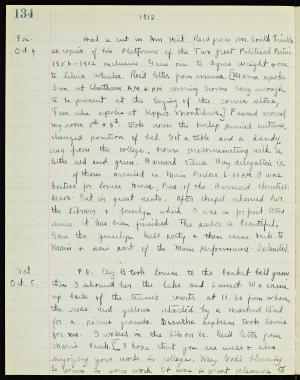 134
1912
Fri.
Oct. 4
Had a cut in Am. Hist. Recd from Mr. South Trimble
copies of his Platforms of the Two great Political Parties
1856-1912 inclusive. Gave one to Agnes Wright & one
to Wheeler. Recd letter from mama. [Mama spoke
Sun. at Chatham A.M. & P.M. coming home long enough
to be present at the laying of the corner stone,
Tues. she spoke at Upper Montclair.] Fussed around
my room 5th & 6th took down the burlap penned curtains,
changed position of bed. Got a table and a handy
rug from the college, brown predominating with a
little red and green. Barnard Silver Bay delegation
of them arrived in Main Parlors 6 30 P.M. I was
hostess for Louise Pres. of the Barnard Christian
Assoc. Sat in guest seats. After chapel showed her
the Library & Josselyn which I was in for first time
since it has been finished. The parlor is beautiful.
Saw the Josselyn Hall party & then came back to
Main & saw part of the Main Performance. Splendid.
Sat.
Oct. 5.
took Louise to the basket ball game
then I showed her the lake and sunset. We came
up back of the tennis courts at 11.20 from where
the reds and yellows
for a picnic grounds. took Louise
for me. I worked in the Library. Recd letter from
hope that you are well & also
enjoying your work in college. May God's blessing
be yours in your work. It was a great pleasure to